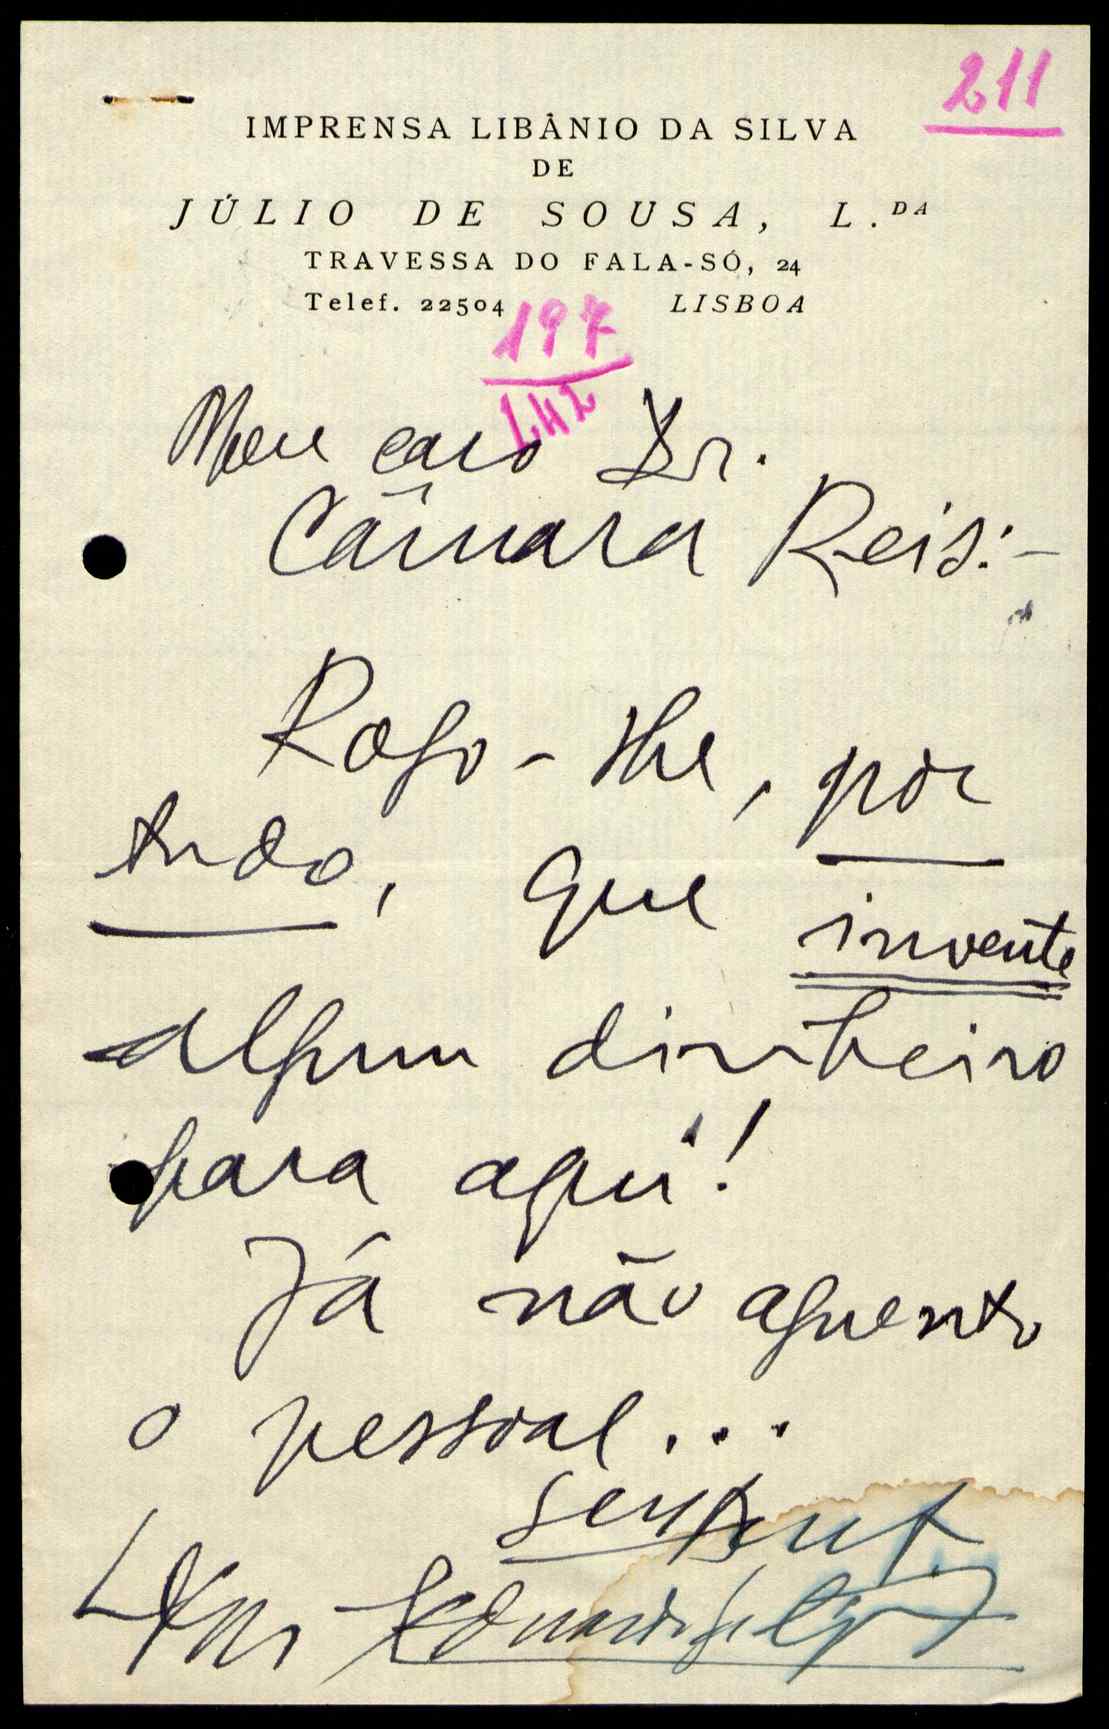 211
IMPRENSA LIBÂNIO DA SILVA
DE
JÚLIO DE SOUSA, L.DA
TRAVESSA DO FALA-SÓ, 24
Telef. 22504 LISBOA
197
242
Meu caro Dr.
Câmara Reis:-
Rogo-lhe, por
tudo, que invente
algum dinheiro
para aqui!
Já não aguento
o pessoal...